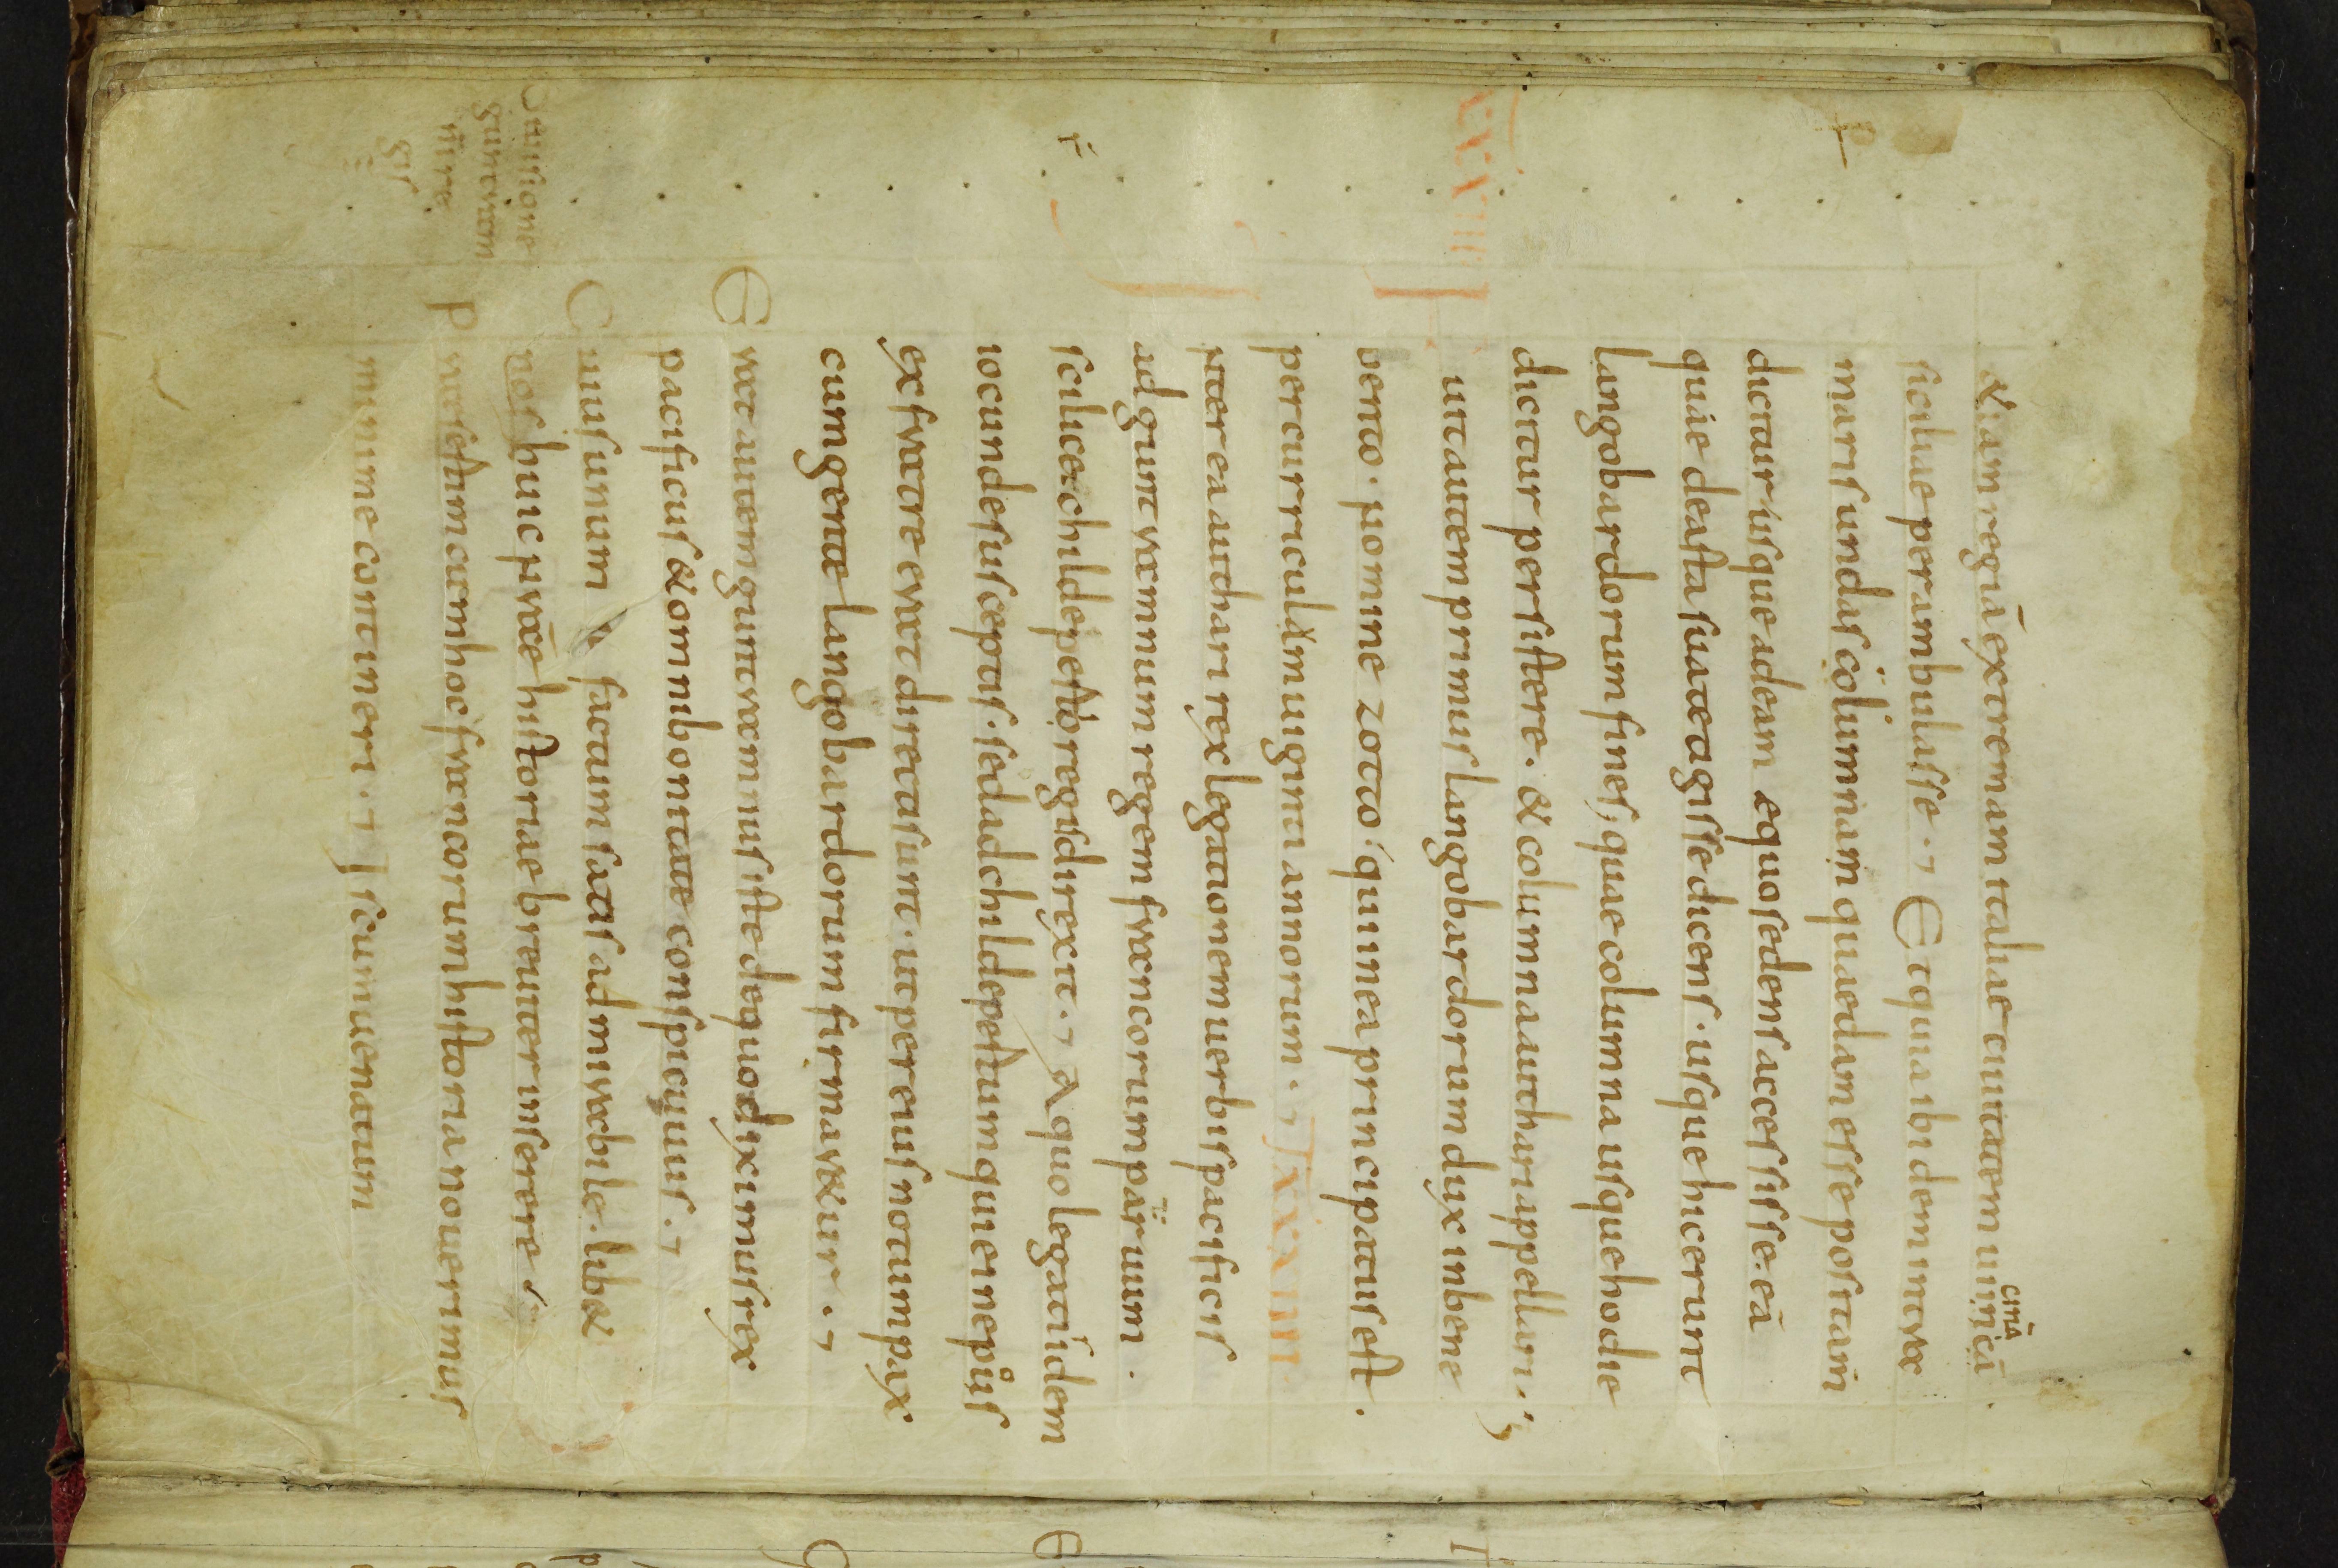 & iam regiā extremam italiae ciuitatem uiniciā
cinā
siciliae perambulasse. Et quia ibidem intra
maris undas columnam quaedam esse positam
dicitur usque ad eam equo sedens accessisse. eā
quae de asta sua tetigisse dicens. usque hic erunt
langobardorum fines, quae columna usque hodie
dicitur persistere. & columna authari appellari;
XXXIII
uit autem primus langobardorum dux in bene
bento. nomine zotto qui in ea principatus est.
per curriculam uiginti annorum. XXXIIII
nterea authari rex legationem uerbis pacificis
ad guntramnum regem francorum paruum.
scilicet childeperto regis direxit. A quo legati idem
iocunde suscepti. sed ad childepertum qui ei nepus
ex fratre erat directi sunt. ut per eius notum pax
cum gente langobardorum firmar&ur.
Erat autem guntramnus iste de quo diximus rex
pacificus & omni bonitate conspicuus.
Cuius unum factum satis admirabile. lib&
nos huic nrāe historiae breuiter inserere.
Praesertim cum hoc francorum historia nouerimus
minime contineri. Is cum uenatum
De uisione
guntram
ni re
gis